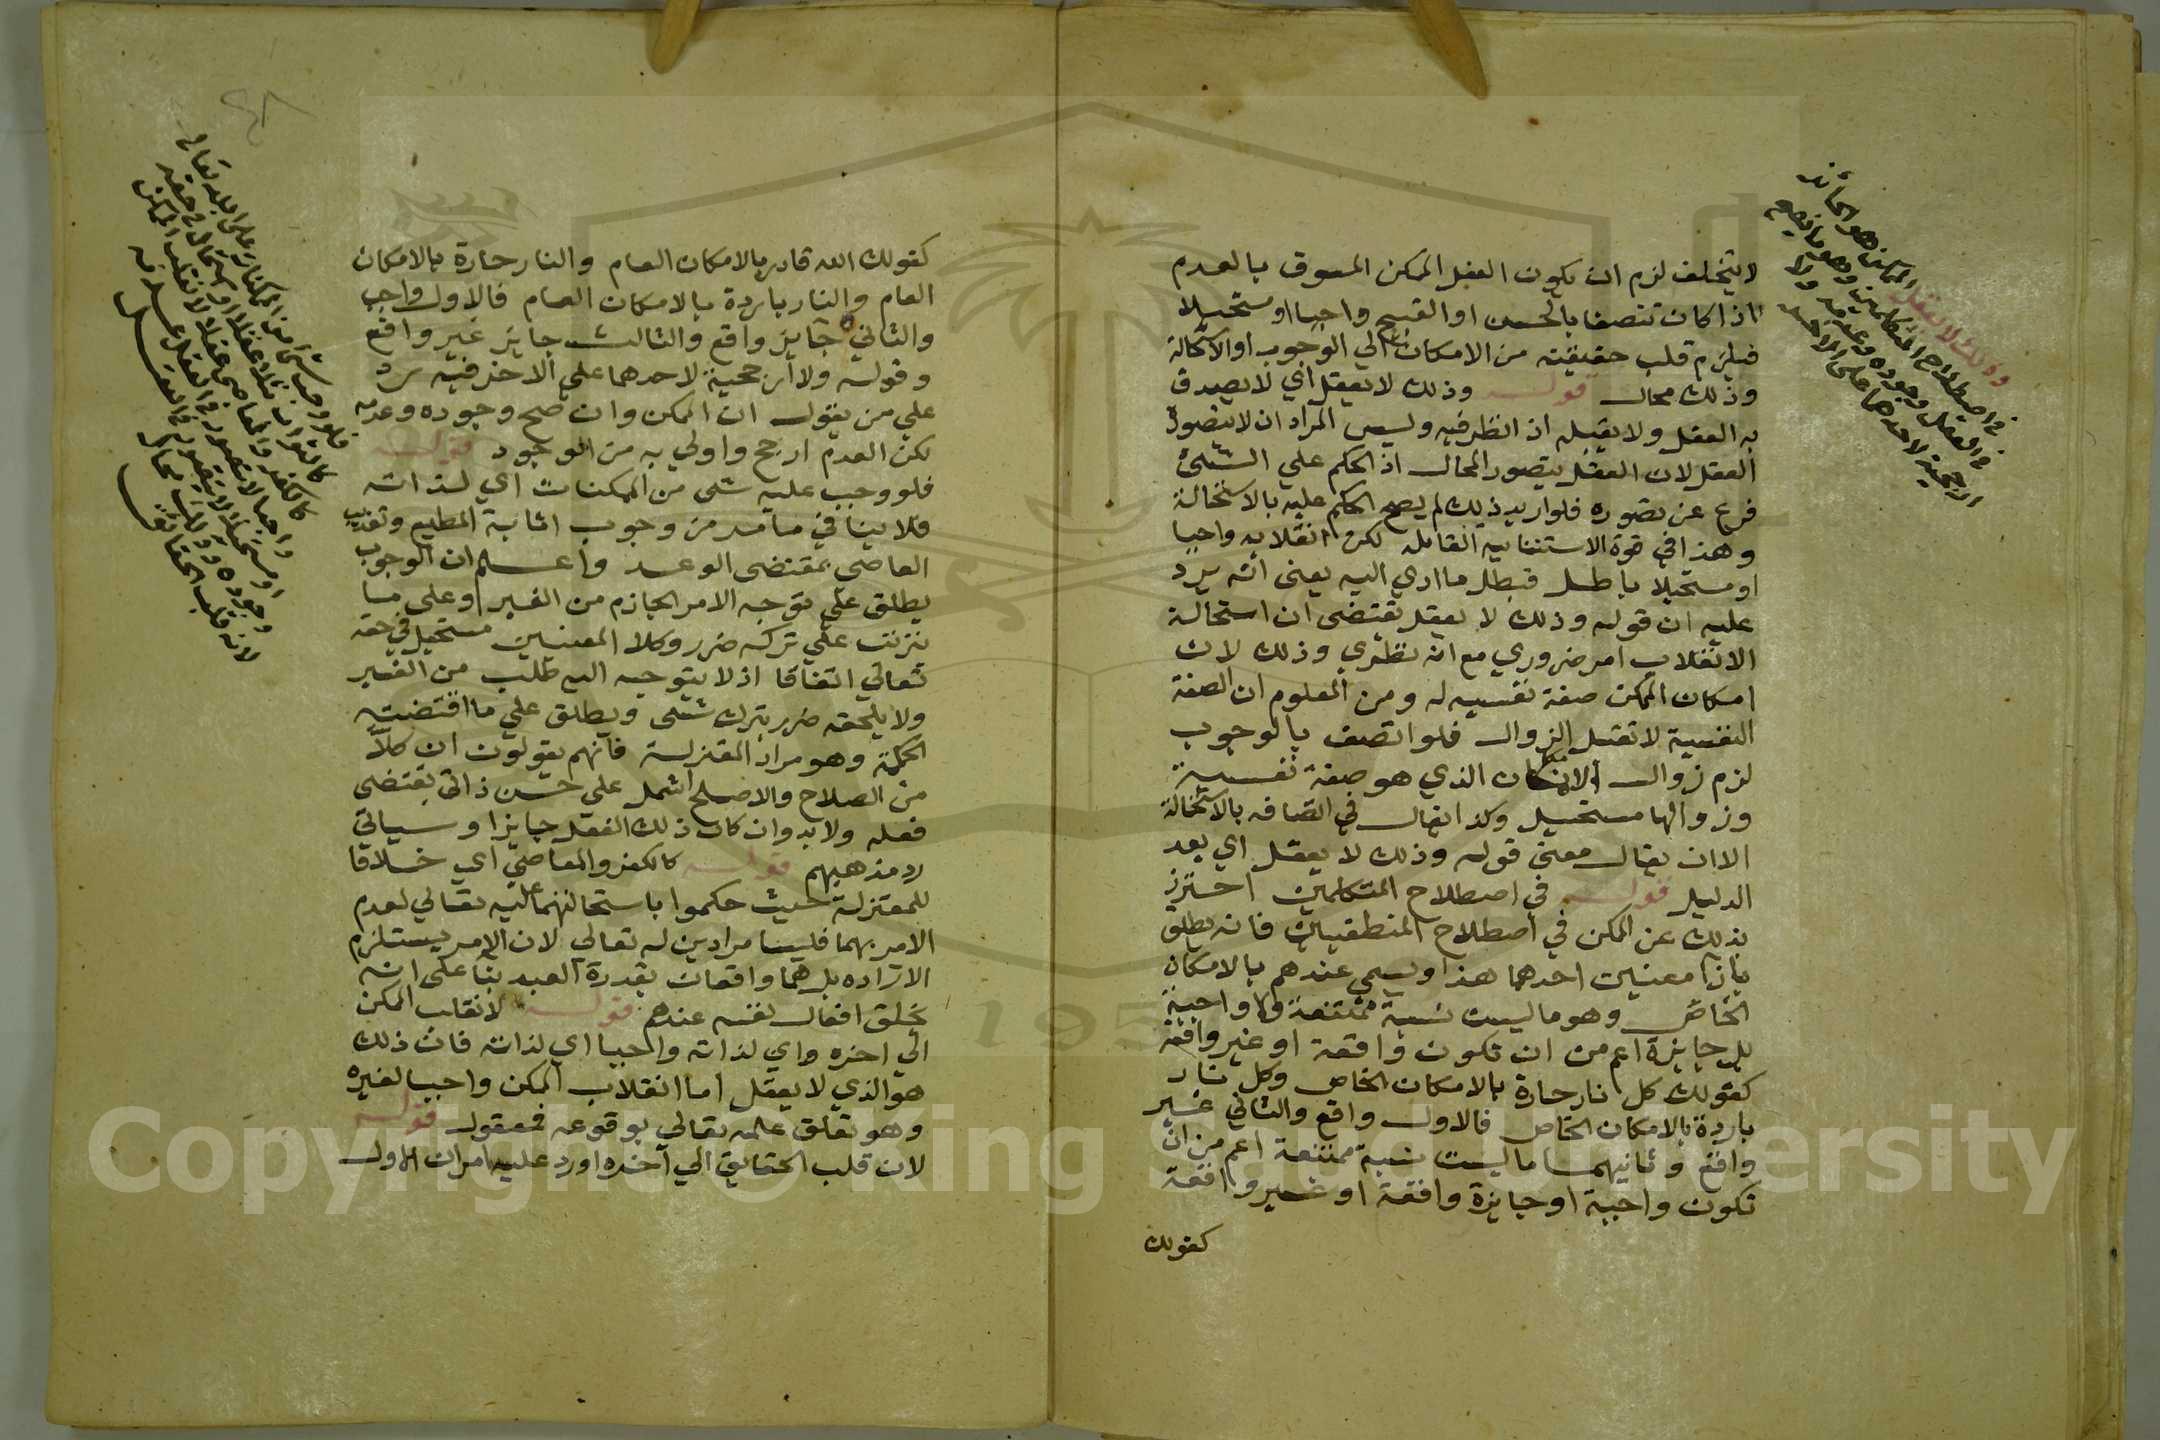 لا يتخلف لزم ان يكون الفعل الممكن المسبوق بالعدم
اذا كان تتصفا بالحسن او القبح واجبا او مستحيلا
فيلزم قلب حقيقته من الامكان الي الوجوب او الاستحالة
وذلك محال قوله وذلك لا يعقل اي لا يصدق
به العقل ولا يقبله اذ انظر فيه وليس المراد ان لا يتصوره
العقل لان العقل يتصور المحال اذ الحكم علي الشئ
فرع عن تصوره فلو اريد ذلك لم يصح الحكم عليه بالاستحالة
وهذا في قوة الاستثنائيه القايله لكن انقلابه واجبا
او مستحيلا باطل فبطل ما ادي اليه يعني انه يرد
عليه ان قوله وذلك لا يعقل يقتضي ان استحالة
الانقلاب امر ضروري مع انه نظري وذلك لان
امكان الممكن صفة نفسيه له ومن المعلوم ان الصفة
النفسية لا تقبل الزوال فلو اتصف بالوجوب
لزم زوال الامكان الذي هو صفة نفسية
وزوالها مستحيل وكذا يقال في اتصافه بالاستحالة
الا ان يقال معني قوله وذلك لا يعقل اي بعد
الدليل قوله في اصطلاح المتكلمين احترز
بذلك عن الممكن في اصطلاح المنطقيين فانه يطلق
بازا معنيين احدهما هذا ويسمي عندهم بالامكان
الخاص وهو ما ليست نسبة ممتنعة ولا واجبة
بل جايزة اعم من ان تكون واقعة او غير واقعة
كقولك كل نار حارة بالامكان الخاص وكل نار
باردة بالامكان الخاص فالاول واقع والثاني غير
واقع وثانيهما ما ليست نسبة ممتنعة اعم من ان
تكون واجبة او جايزة واقعة او غير واقعة
كقولك
وذلك لا يعقل الممكن هو الجائز
في اصطلاح المتكلمين وهو ما يصح
في العقل وجوده وعدمه ولا
ارجحية لاحدهما علي الاخر
كقولك الله قادر بالامكان العام والنار حارة بالامكان
العام والنار باردة بالامكان العام فالاول واجب
والثاني جايز واقع والثالث جايز غير واقع
وقوله ولا ارجحية لاحدهما علي الاخر فيه رد
علي من يقول ان الممكن وان صح وجوده وعدمه
لكن العدم ارجح واولي به من الوجود قوله
فلو وجب عليه شي من الممكنات اي لذاته
فلا ينافي ما مر من وجوب اثابة المطيع وتعذيب
العاصي بمقتضي الوعد واعلم ان الوجوب
يطلق علي توجه الامر الجازم من الغير او علي ما
يترتب علي تركه ضرر وكلا المعنيين مستحيل في حقه
تعالي اتفاقا اذ لا يتوجه اليه طلب من الغير
ولا يلحقه ضرر بترك شي ويطلق علي ما اقتضته
الحكمة وهو مراد المعتزلة فانهم يقولون ان كلا
من الصلاح والاصلح اشمل علي حسن ذاتي يقتضي
فعله ولا بد وان كان ذلك الفعل جايزا وسياتي
رد مذهبهم قوله كالكفر والمعاصي اي خلافا
للمعتزلة حيث حكموا باستحالتهما عليه تعالي لعدم
الامر بهما فليسا مرادين له تعالي لان الامر يستلزم
الاراده بل هما واقعان بقدرة العبد بنا علي انه
يخلق افعال نفسه عندهم قوله لانقلب الممكن
الي اخره واي لذاته واجبا اي لذاته فان ذلك
هو الذي لا يعقل اما انقلاب الممكن واجبا لغيره
وهو تعلق علمه تعالي بوقوعه فمعقول قوله
لان قلب الحقايق الي آخره اورد عليه امران الاول
فلو وجب شي من الممكنات علي الله تعالي
كالثواب مثلا عقلا او استحال في حقه
كالكفر والمعاصي عقلا لانقلب الممكن
واجبا لا يتصور في العقل عدمه
او مستحيلا لا يتصور في العقل
وجوده وذلك محال
لانه قلب الحقائق
٤٨
Copyright © King Saud University
195